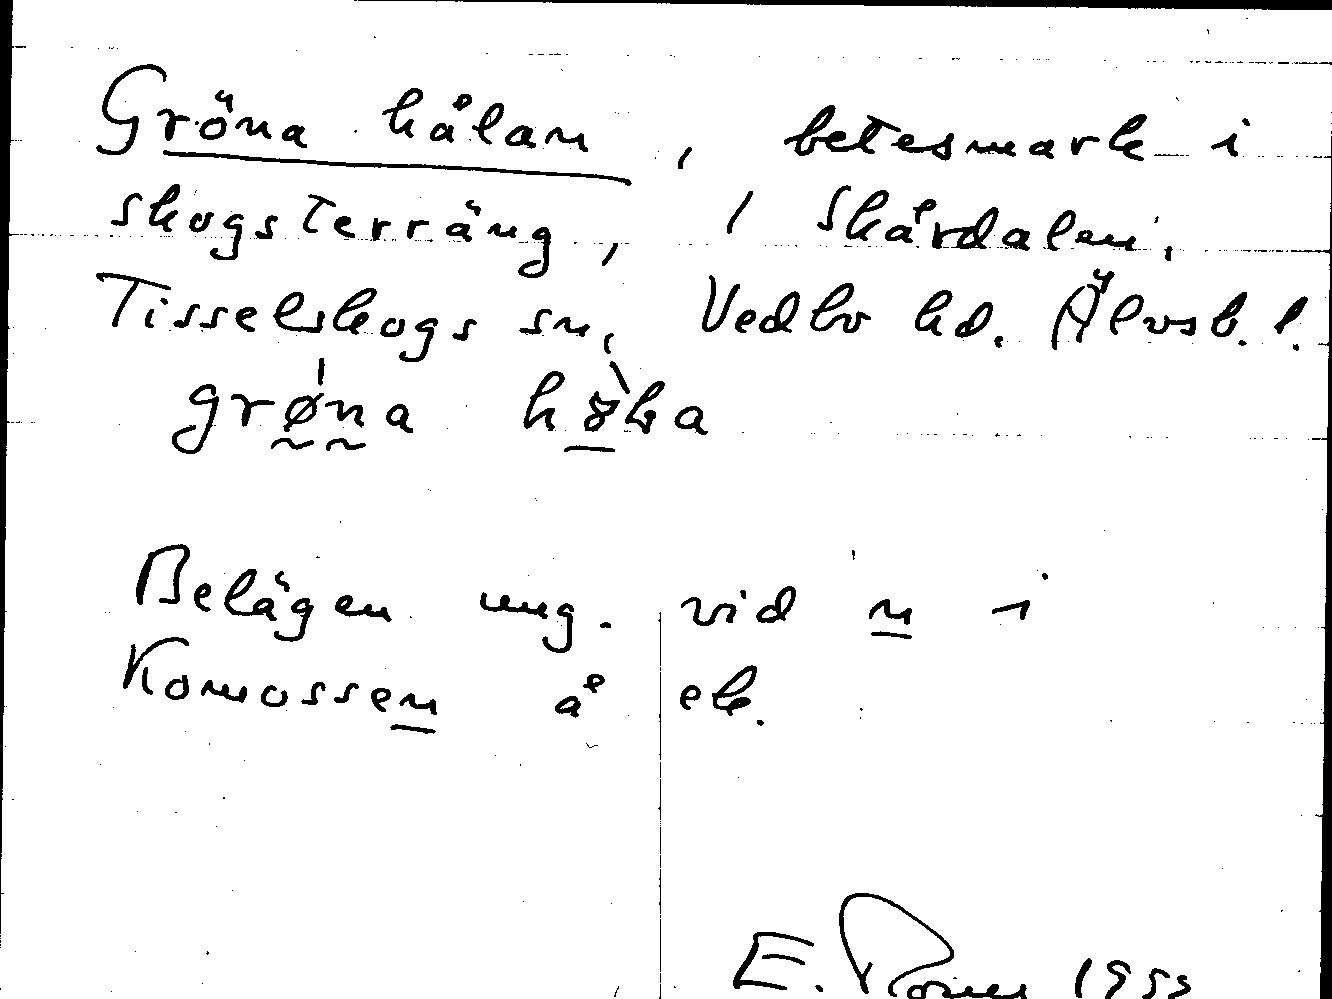 Gröna hålan, betesmark i
skogsterräng, / Skårdalen,
Tisselskogs sn, Vedbo hd. Älvsb. l.
grøna
Belägen ung. vid n i
Komossen å ek.
E. 1955